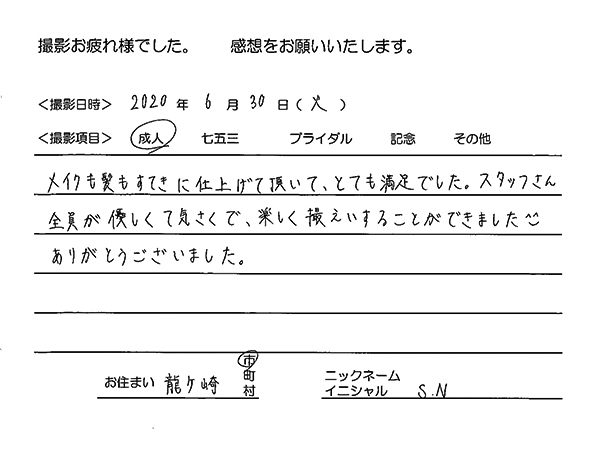 撮影お疲れ様でした。　感想をお願いいたします。
<撮影日時> 2020 年 6 月 30 日 (火)
<撮影項目> 成人 七五三 ブライダル 記念 その他
メイクも髪もすてきに仕上げて頂いて、とても満足でした。スタッフさん
全員が優しくて気さくで、楽しく撮えいすることができました☺
ありがとうございました。
お住まい 龍ケ崎 市 町 村 ニックネーム イニシャル S.N